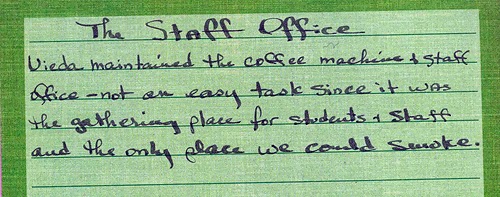 The Staff Office
Vieda maintained the coffee machine & staff
office - not an easy task since it was
the gathering place for students & staff
and the only place we could smoke.